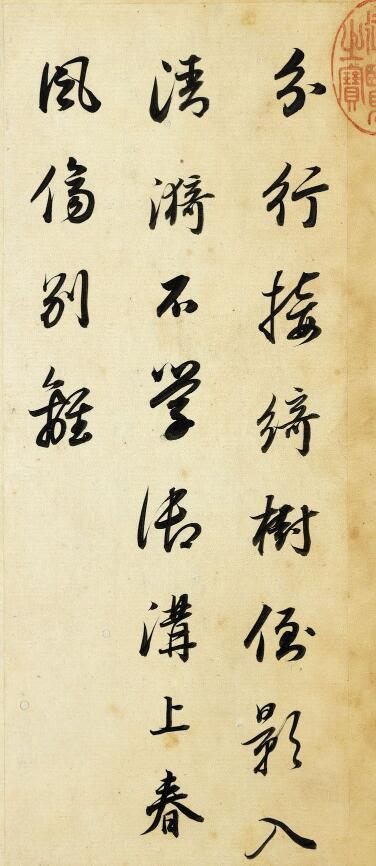 分行接綺樹倒影入
清漪不學御溝上春
風傷別離
之寶